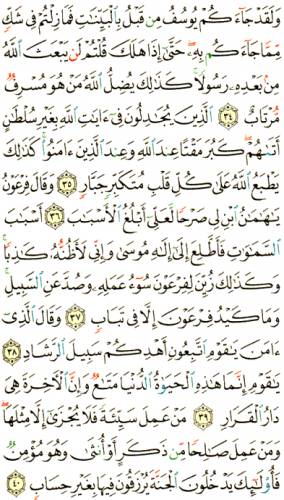 وَلَقَدْ جَآءَكُمْ يُوسُفُ مِن قَبْلُ بِٱلْبَيِّنَٰتِ فَمَا زِلْتُمْ فِى شَكٍّ
مِّمَّا جَآءَكُم بِهِۦ حَتَّىٰٓ إِذَا هَلَكَ قُلْتُمْ لَن يَبْعَثَ ٱللَّهُ
مِنۢ بَعْدِهِۦ رَسُولًا كَذَٰلِكَ يُضِلُّ ٱللَّهُ مَنْ هُوَ مُسْرِفٌ
مُّرْتَابٌ ٣٤ ٱلَّذِينَ يُجَٰدِلُونَ فِىٓ ءَايَٰتِ ٱللَّهِ بِغَيْرِ سُلْطَٰنٍ
أَتَىٰهُمْ كَبُرَ مَقْتًا عِندَ ٱللَّهِ وَعِندَ ٱلَّذِينَ ءَامَنُوا۟ كَذَٰلِكَ
يَطْبَعُ ٱللَّهُ عَلَىٰ كُلِّ قَلْبِ مُتَكَبِّرٍ جَبَّارٍ ٣٥ وَقَالَ فِرْعَوْنُ
يَٰهَٰمَٰنُ ٱبْنِ لِى صَرْحًا لَّعَلِّىٓ أَبْلُغُ ٱلْأَسْبَٰبَ ٣٦ أَسْبَٰبَ
ٱلسَّمَٰوَٰتِ فَأَطَّلِعَ إِلَىٰٓ إِلَٰهِ مُوسَىٰ وَإِنِّى لَأَظُنُّهُۥ كَٰذِبًا
وَكَذَٰلِكَ زُيِّنَ لِفِرْعَوْنَ سُوٓءُ عَمَلِهِۦ وَصُدَّ عَنِ ٱلسَّبِيلِ
وَمَا كَيْدُ فِرْعَوْنَ إِلَّا فِى تَبَابٍ ٣٧ وَقَالَ ٱلَّذِىٓ
ءَامَنَ يَٰقَوْمِ ٱتَّبِعُونِ أَهْدِكُمْ سَبِيلَ ٱلرَّشَادِ ٣٨
يَٰقَوْمِ إِنَّمَا هَٰذِهِ ٱلْحَيَوٰةُ ٱلدُّنْيَا مَتَٰعٌ وَإِنَّ ٱلْءَاخِرَةَ هِىَ
دَارُ ٱلْقَرَارِ ٣٩ مَنْ عَمِلَ سَيِّئَةً فَلَا يُجْزَىٰٓ إِلَّا مِثْلَهَا
وَمَنْ عَمِلَ صَٰلِحًا مِّن ذَكَرٍ أَوْ أُنثَىٰ وَهُوَ مُؤْمِنٌ
فَأُو۟لَٰٓئِكَ يَدْخُلُونَ ٱلْجَنَّةَ يُرْزَقُونَ فِيهَا بِغَيْرِ حِسَابٍ ٤٠